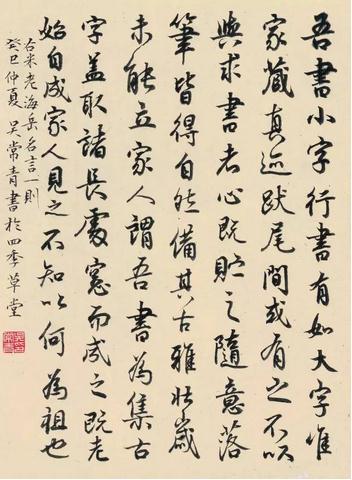 吾書小字行書有如大字惟
家藏真迹跋尾間或有之不以
與求書者心既貯之隨意落
筆皆得自然備其古雅壯歲
未能立家人謂吾書為集古
字蓋取諸長處總而成之既老
始自成家人見之不知以何為祖也
右米老海岳名言一則
癸巳仲夏吳常青書於四季草堂